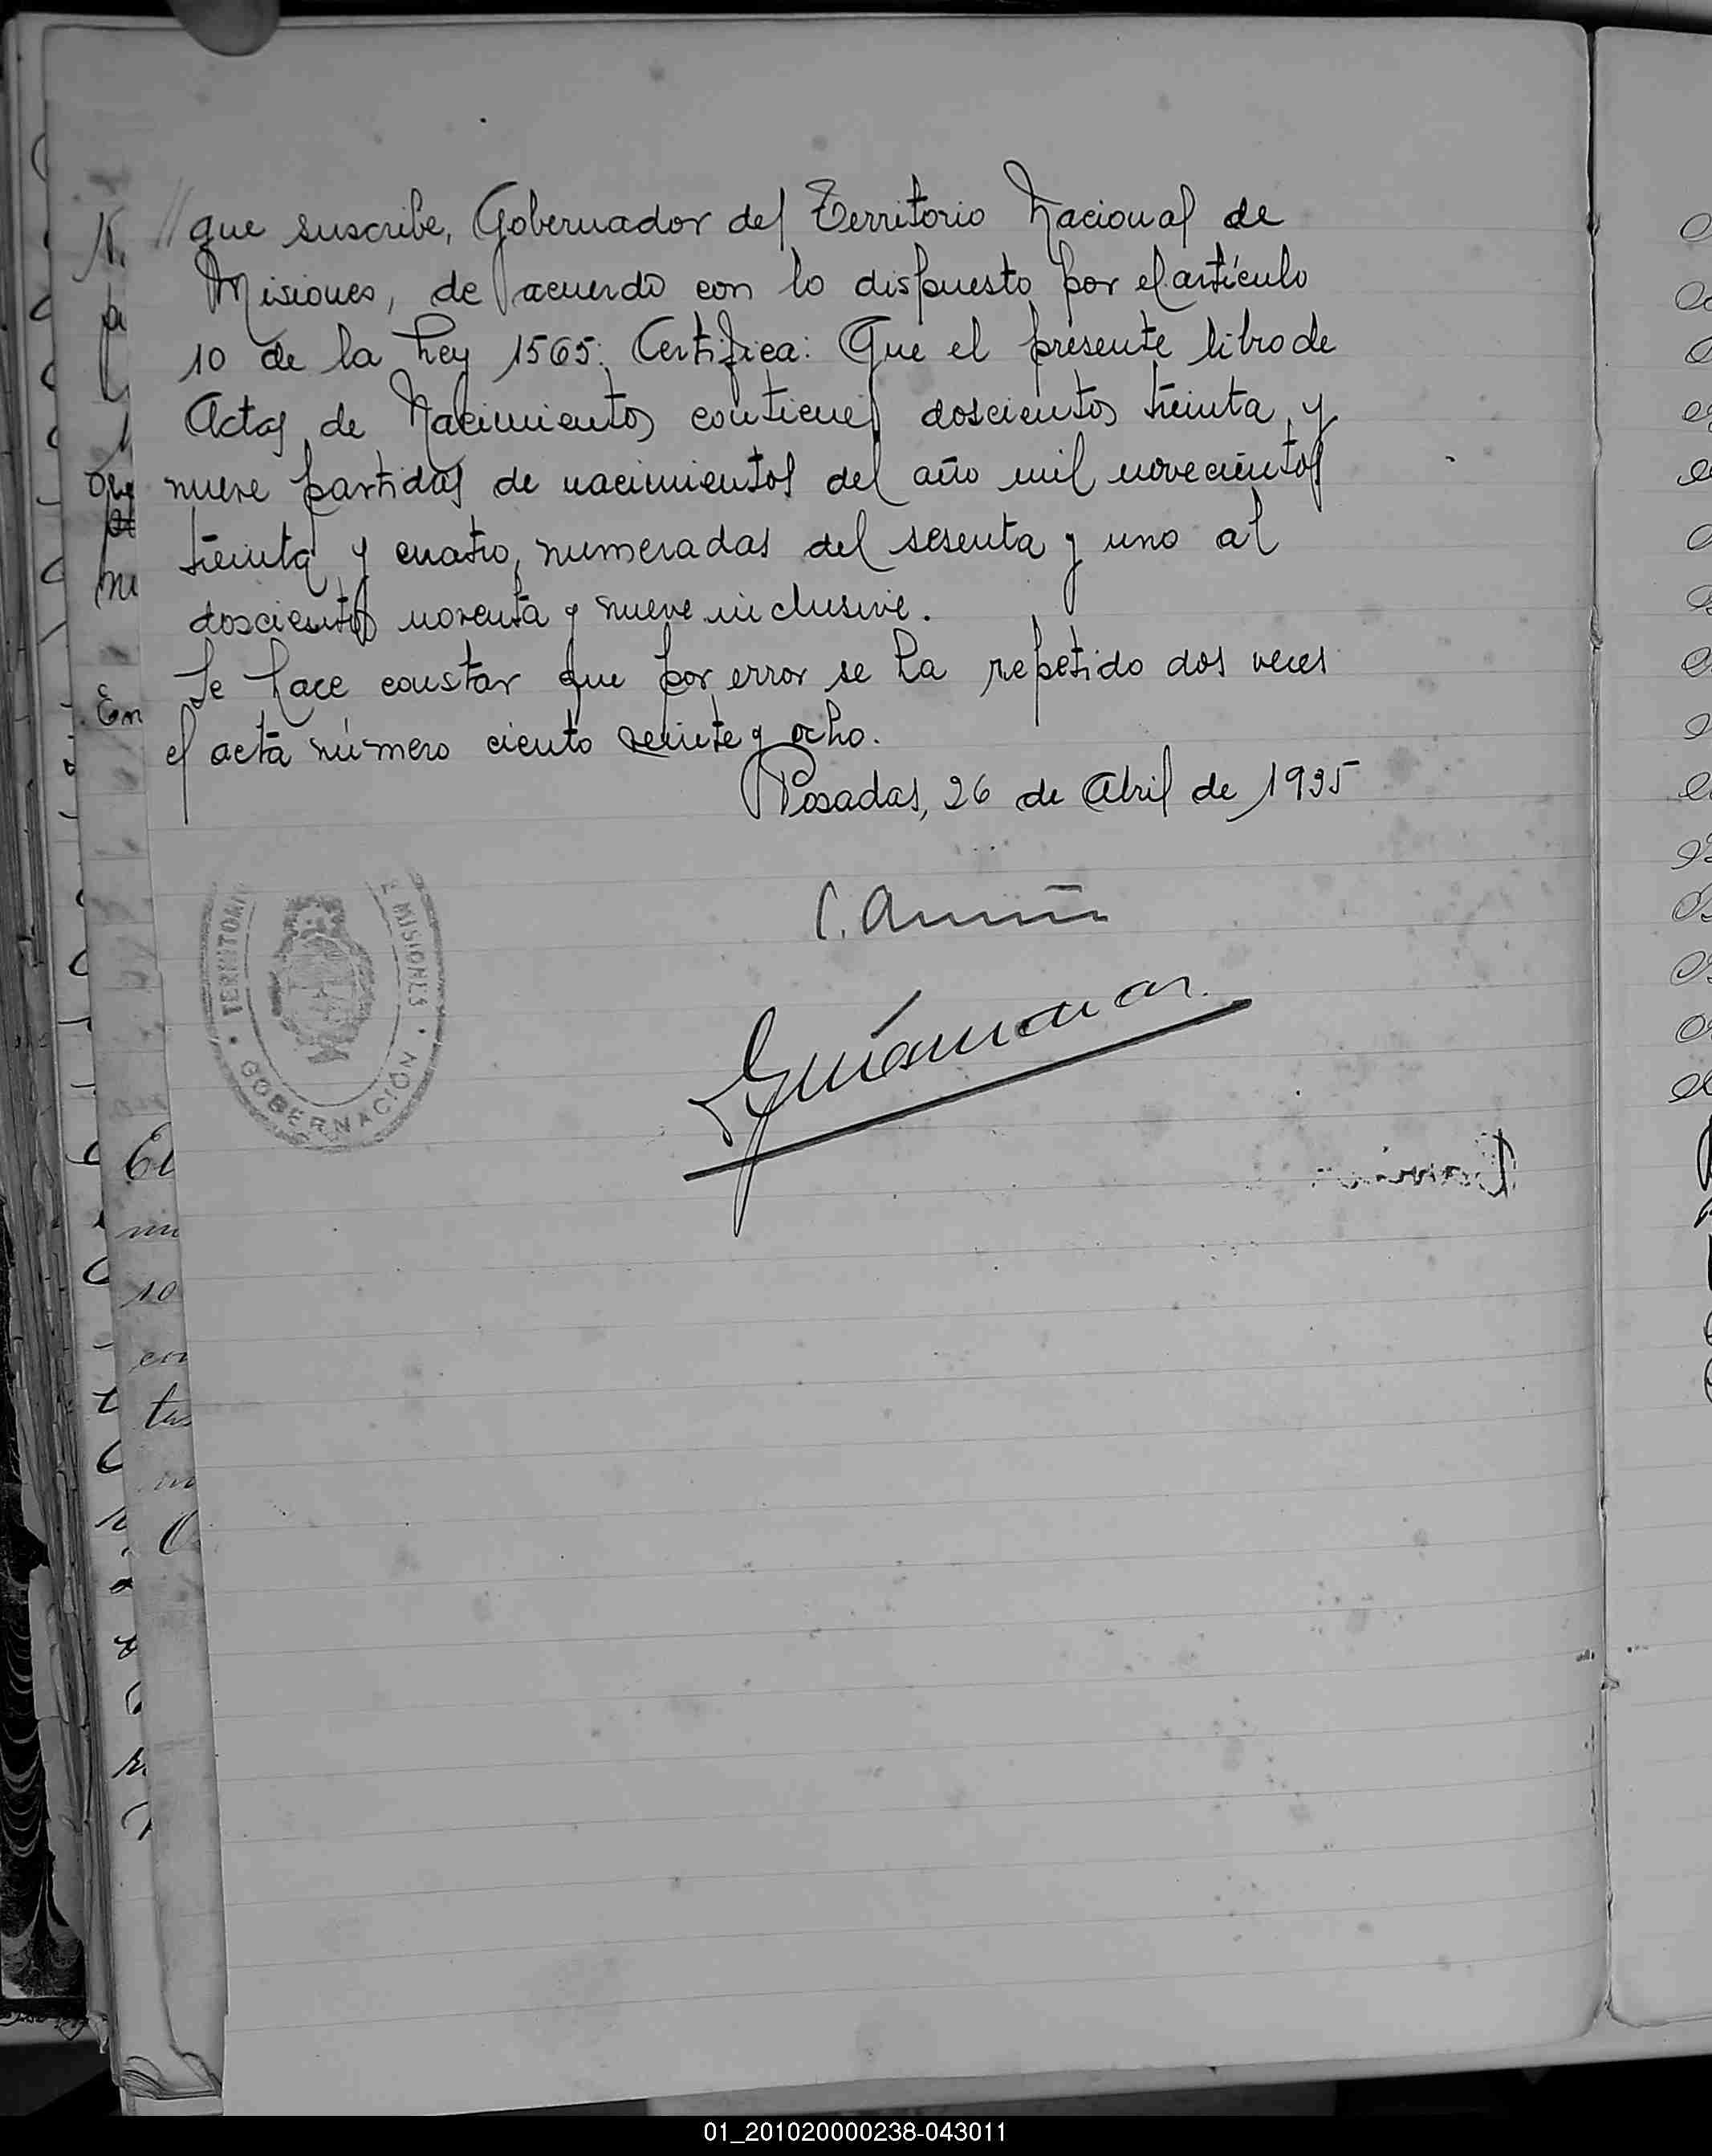 // que suscribe, Gobernador del Territorio Nacional de
Misiones, de acuerdo con lo dispuesto por el artículo
10 de la Ley 1565: Certifica: Que el presente libro de
Actas de Nacimientos contiene doscientos treinta y
nueve partidas de nacimientos del año mil novecientos
treinta y cuatro, numeradas del sesenta y uno al
doscientos noventa y nueve inclusive.
Se hace constar que por error se ha repetido dos veces
el acta número ciento veinte y ocho.
Posadas, 26 de Abril de 1935
TERRITORI
E MISIONES
GOBERNACIÓN
En
El
10
01_201020000238-043011